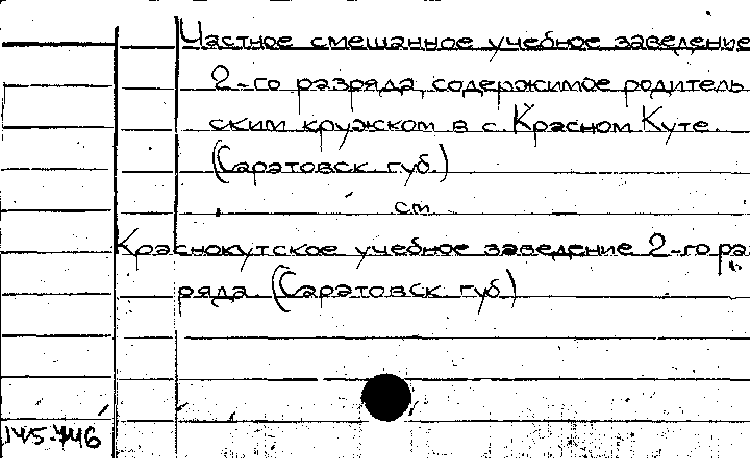 Частное смешанное учебное заведение
2-го разряда, содержимое родитель
ским кружком в с. Красном Куте.
(Саратовск. губ.)
см.
Краснокутское учебное заведение 2-го раз
ряда. (Саратовск. губ.)